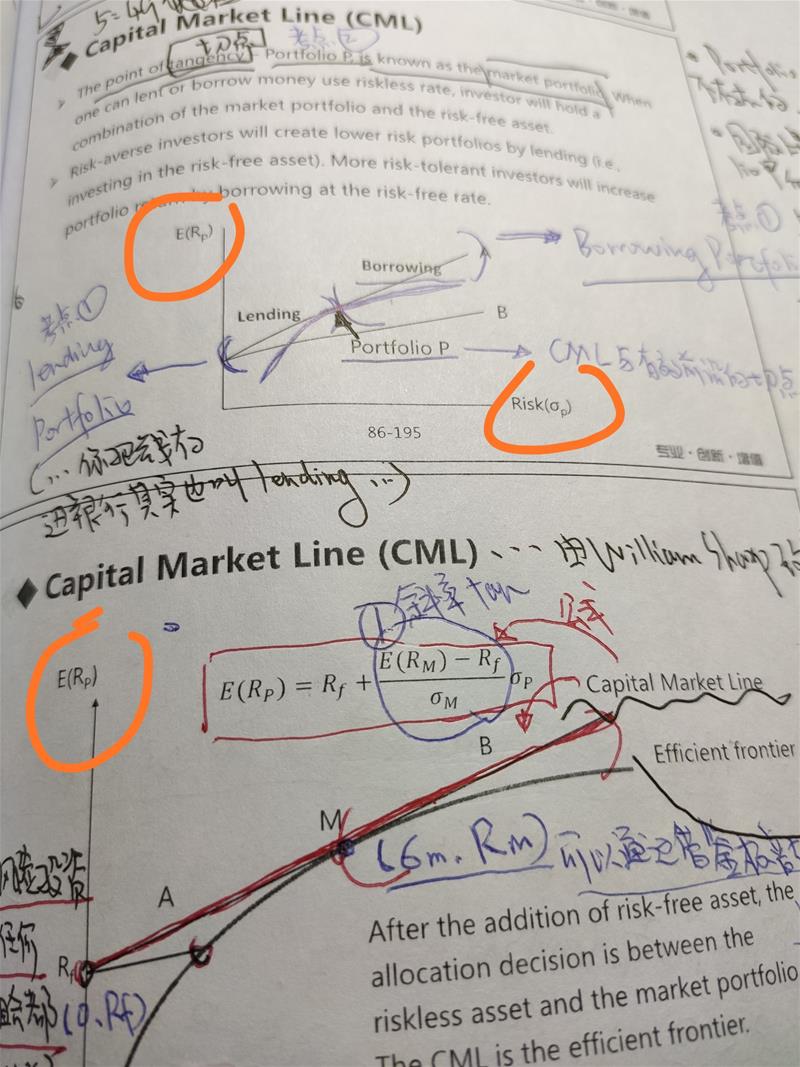 Capital Market Line (CML)
切点 考点②
The point of tangency - Portfolio P is known as the market portfolio. When
one can lent or borrow money use riskless rate, investor will hold a
combination of the market portfolio and the risk-free asset.
Risk-averse investors will create lower risk portfolios by lending (i.e.,
investing in the risk-free asset). More risk-tolerant investors will increase
portfolio return by borrowing at the risk-free rate.
E(Rp)
A
Borrowing
Borrowing Portfolio
考点①
B
Lending
考点①
lending
Portfolio
Portfolio P
CML与有效前沿的切点
Risk(σp)
86-195
专业·创新·增值
(...你把钱存
进银行其实也叫 lending ...)
Capital Market Line (CML) ... 由William Sharp
① 斜率 tan
公式
E(RP)
E(RP) = Rf + E(RM) − Rf / σM σP
Capital Market Line
B
Efficient frontier
M
(σm, Rm) 可以通过
A
任何
Rf
(0, Rf)
After the addition of risk-free asset, the
allocation decision is between the
riskless asset and the market portfolio
The CML is the efficient frontier.